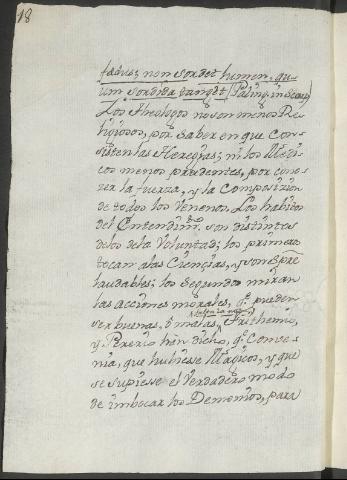 18
factus; non sordet lumen, qu-
um sordida tangit (Paling. in Scorp)
Los theologos no son menos Re-
ligiosos, por saber en que Con-
sisten las Heregias; ni los Medi-
cos menos prudentes, por cono-
zer la fuerza, y la Composizion
de todos los Venenos. Los habitos
del Entendim.to son distintos
delos dela Voluntad; los primeros
tocan alas Ciencias, y son sẽpre
laudables; los Segundos miran
las acciones morales, q.e pueden
ser buenas, ò malas, Trithemio,
y Pererio hãn dicho, q.e Conve-
nia, que hubiesse Magicos, y que
se supiesse el Verdadero modo
de imbocar los Demonios, para